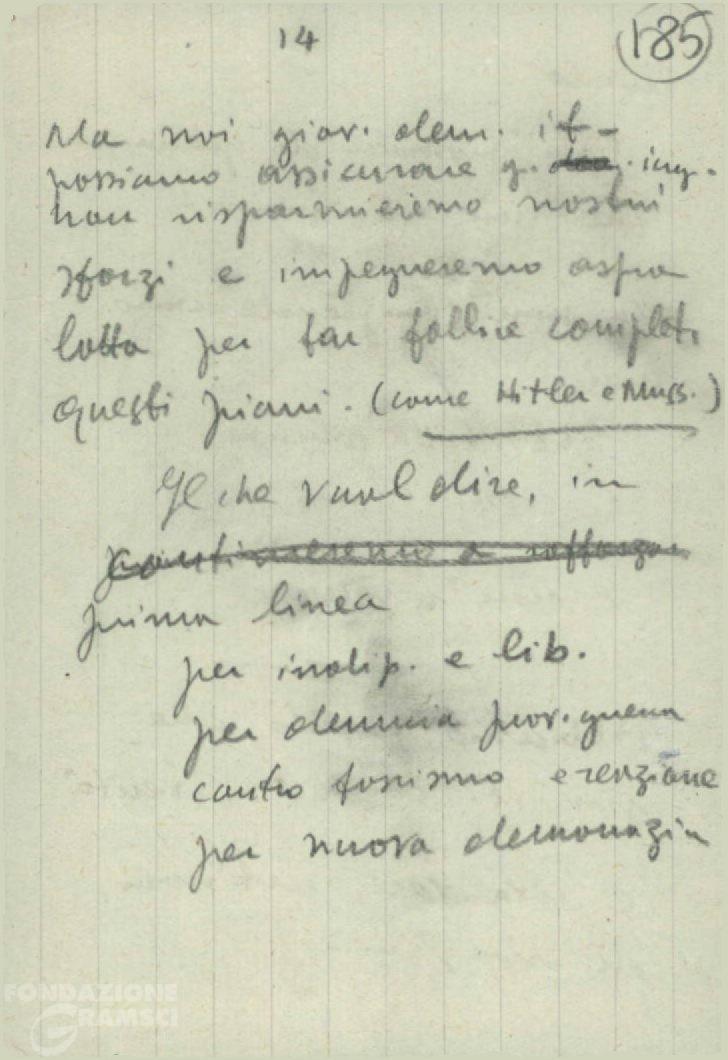 14
185
Ma noi giov. dem. it-
possiamo assicurare g. ing.
non risparmieremo nostri
sforzi e impegneremo aspra
lotta per far fallire complet.
questi piani. (come Hitler e Muss.)
Il che vuol dire, in
continueremo a rafforzare
prima linea
per indip. e lib.
per denuncia prov. guerra
contro fascismo e reazione
per nuova democrazia
FONDAZIONE
GRAMSCI